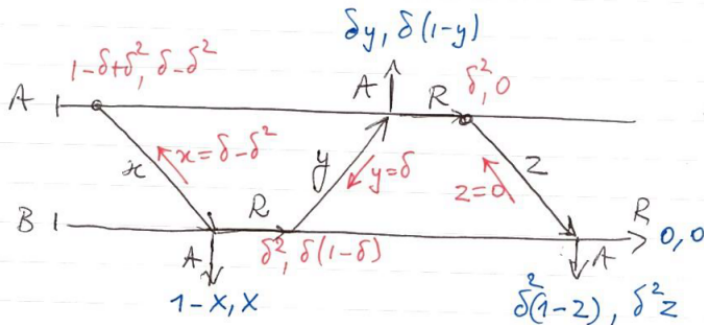 δy, δ(1-y)
1-δ+δ², δ-δ²
A
R
δ², 0
A
x
x=δ-δ²
y
y=δ
z=0
z
B
R
R
0, 0
A
δ², δ(1-δ)
A
1-x, x
δ²(1-z), δ²z